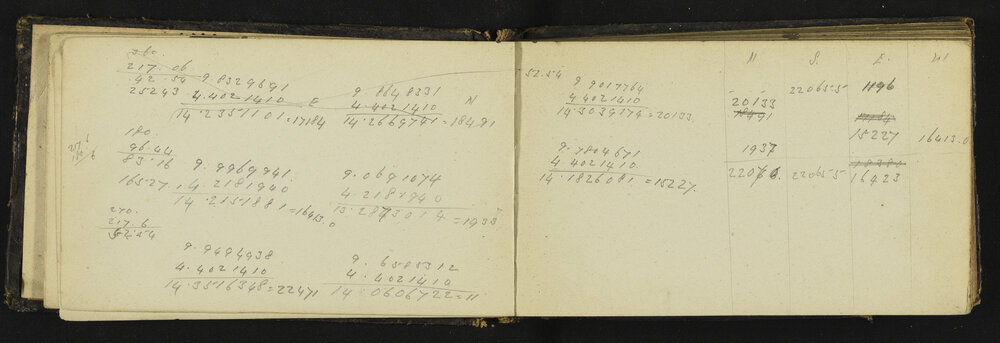 360.
217. 06
42. 54 9.8329691 9 8648331
25243 4.4021410 E 4.4021410 N
14.2351101=17184 14.2669741=18491
180.
96.44
83.16 9.9969941 9.0691074
16527. 4.2181940 4.2181940
14.2151881=16413.0
270.
217.6
52.54
9.9494938 9.6585312
4.4021410 4.4021410
14.3516348=22471 14.0606722=11
52.54
9 9017764
4 4021410
14.3039174=20133
9.7804671
4 4021410
14.1826081.=15227.
N S. E. W
22065.5 1196
20133
18491 17184
15227 16413.0
1937
22070. 22065.5 16423